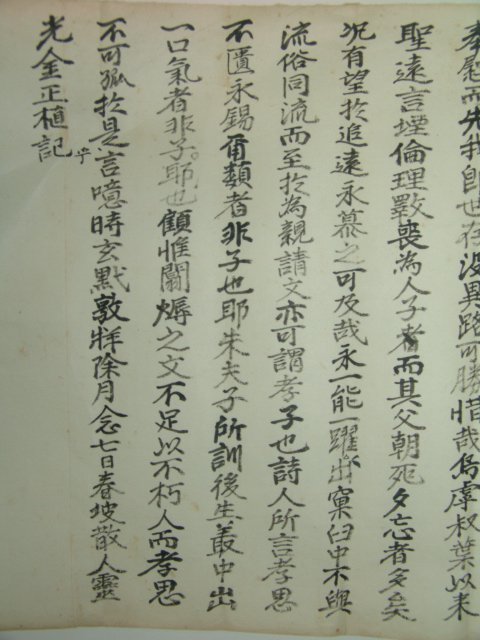 奉慰而先我卽世存沒異路可勝惜哉烏虖叔葉以來
聖遠言堙倫理斁喪為人子者而其父朝死夕忘者多矣
况有望於追遠永慕之可及哉永一能一躍出窠臼中不與
流俗同流而至於為親請文亦可謂孝子也詩人所言孝思
不匱永錫爾類者非子也耶朱夫子所訓後生叢中出
一口氣者非子耶也顧惟闒之文不足以不朽人而孝思
不可孤於是乎言噫時玄黓敦牂除月念七日春坡散人靈
光金正植記